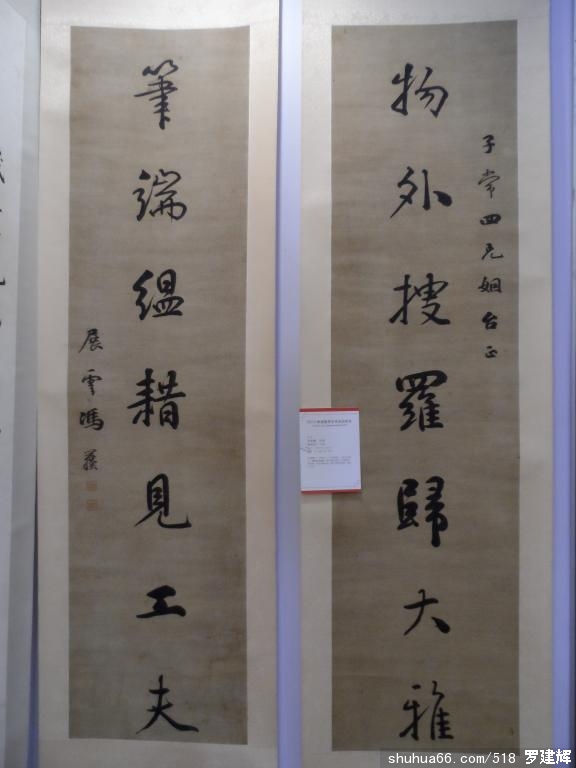 子常四兄姻台正
物外搜羅歸大雅
筆端緼耤見工夫
展雲馮譽
shuhua66.com/518 罗建辉